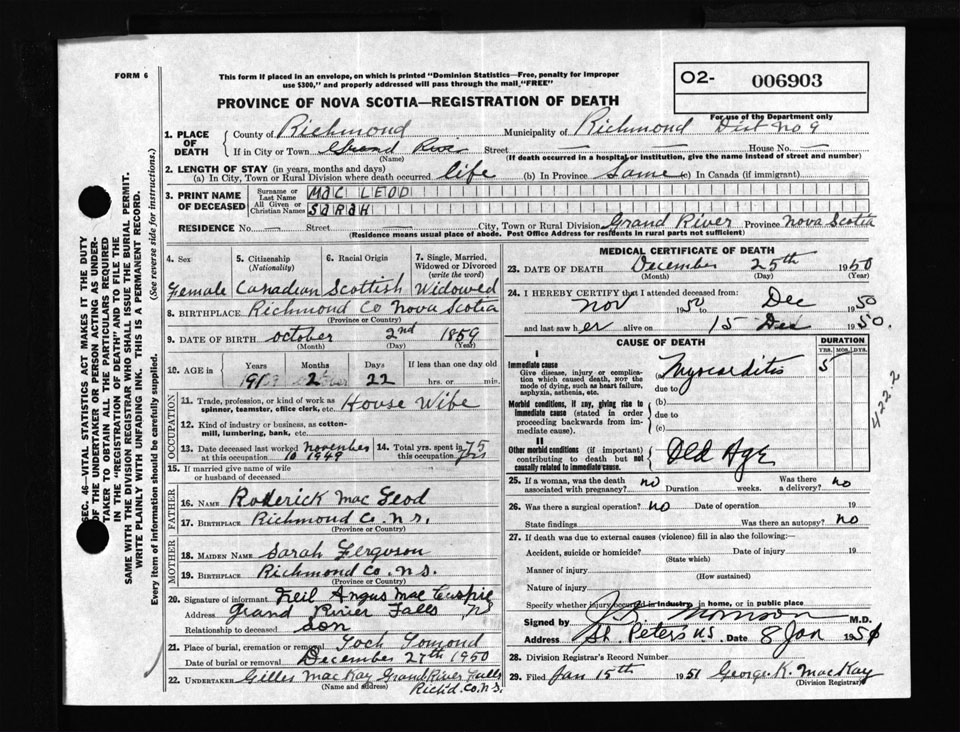 FORM 6
This form if placed in an envelope, on which is printed "Dominion Statistics—Free, penalty for improper
use $300," and properly addressed will pass through the mail "FREE"
O2- 006903
For use of the Department only
PROVINCE OF NOVA SCOTIA—REGISTRATION OF DEATH
1. PLACE OF DEATH
County of Richmond Municipality of Richmond Dist No 9
If in City or Town Grand River Street — House No. —
(Name) (If death occurred in a hospital or institution, give the name instead of street and number)
2. LENGTH OF STAY (in years, months and days)
(a) In City, Town or Rural Division where death occurred life (b) In Province Same (c) In Canada (if immigrant)
3. PRINT NAME OF DECEASED
Surname or Last Name MAC LEOD
All Given or Christian Names SARAH
RESIDENCE No. — Street — City, Town or Rural Division Grand River Province Nova Scotia
(Residence means usual place of abode. Post Office Address for residents in rural parts not sufficient)
4. Sex
Female
5. Citizenship (Nationality)
Canadian
6. Racial Origin
Scottish
7. Single, Married, Widowed or Divorced (write the word)
Widowed
8. BIRTHPLACE Richmond Co Nova Scotia
(Province or Country)
9. DATE OF BIRTH october 2nd 1859
(Month) (Day) (Year)
10. AGE in
Years Months Days If less than one day old
91 2 22 hrs. or min.
OCCUPATION
11. Trade, profession or kind of work as spinner, teamster, office clerk, etc. House Wife
12. Kind of industry or business, as cotton-mill, lumbering, bank, etc.
13. Date deceased last worked at this occupation November 10 1949
14. Total yrs. spent in this occupation 75
15. If married give name of wife or husband of deceased
FATHER
16. NAME Roderick Mac Leod
17. BIRTHPLACE Richmond Co. N.S.
(Province or Country)
MOTHER
18. MAIDEN NAME Sarah Ferguson
19. BIRTHPLACE Richmond Co. N.S.
(Province or Country)
20. Signature of informant Neil Angus Mac
Address Grand River Falls NS
Relationship to deceased Son
21. Place of burial, cremation or removal Loch Lomond
Date of burial or removal December 27th 1950
22. UNDERTAKER Gilles Mac Kay Grand River Falls
(Name and address) Rich'd. Co. N.S.
MEDICAL CERTIFICATE OF DEATH
23. DATE OF DEATH December 25th 1950
(Month) (Day) (Year)
24. I HEREBY CERTIFY that I attended deceased from:
Nov 1950 to Dec 1950
and last saw her alive on 15 Dec 1950.
CAUSE OF DEATH DURATION
YRS. MOS. DYS.
I
Immediate cause
Give disease, injury or complication which caused death, not the mode of dying, such as heart failure, asphyxia, asthenia, etc.
(a) Myocarditis 5
due to
Morbid conditions, if any, giving rise to immediate cause (stated in order proceeding backwards from immediate cause).
(b)
due to
(c)
II
Other morbid conditions (if important) contributing to death but not causally related to immediate cause.
Old Age
422.2
25. If a woman, was the death associated with pregnancy? no Duration weeks. Was there a delivery? no
26. Was there a surgical operation? no Date of operation 19
State findings Was there an autopsy? no
27. If death was due to external causes (violence) fill in also the following:
Accident, suicide or homicide? Date of injury 19
(State which)
Manner of injury
(How sustained)
Nature of injury
Specify whether injury occurred in industry, in home, or in public place
Signed by Morrison M.D.
Address St. Peters N.S. Date 8 Jan
28. Division Registrar's Record Number
29. Filed Jan 15th 1951 George. K. MacKay
(Division Registrar)
SEC. 46—VITAL STATISTICS ACT MAKES IT THE DUTY
OF THE UNDERTAKER OR PERSON ACTING AS UNDER-
TAKER TO OBTAIN ALL THE PARTICULARS REQUIRED
IN THE "REGISTRATION OF DEATH" AND TO FILE THE
SAME WITH THE DIVISION REGISTRAR WHO SHALL ISSUE THE BURIAL PERMIT.
WRITE PLAINLY WITH UNFADING INK. THIS IS A PERMANENT RECORD.
Every item of information should be carefully supplied. (See reverse side for instructions.)